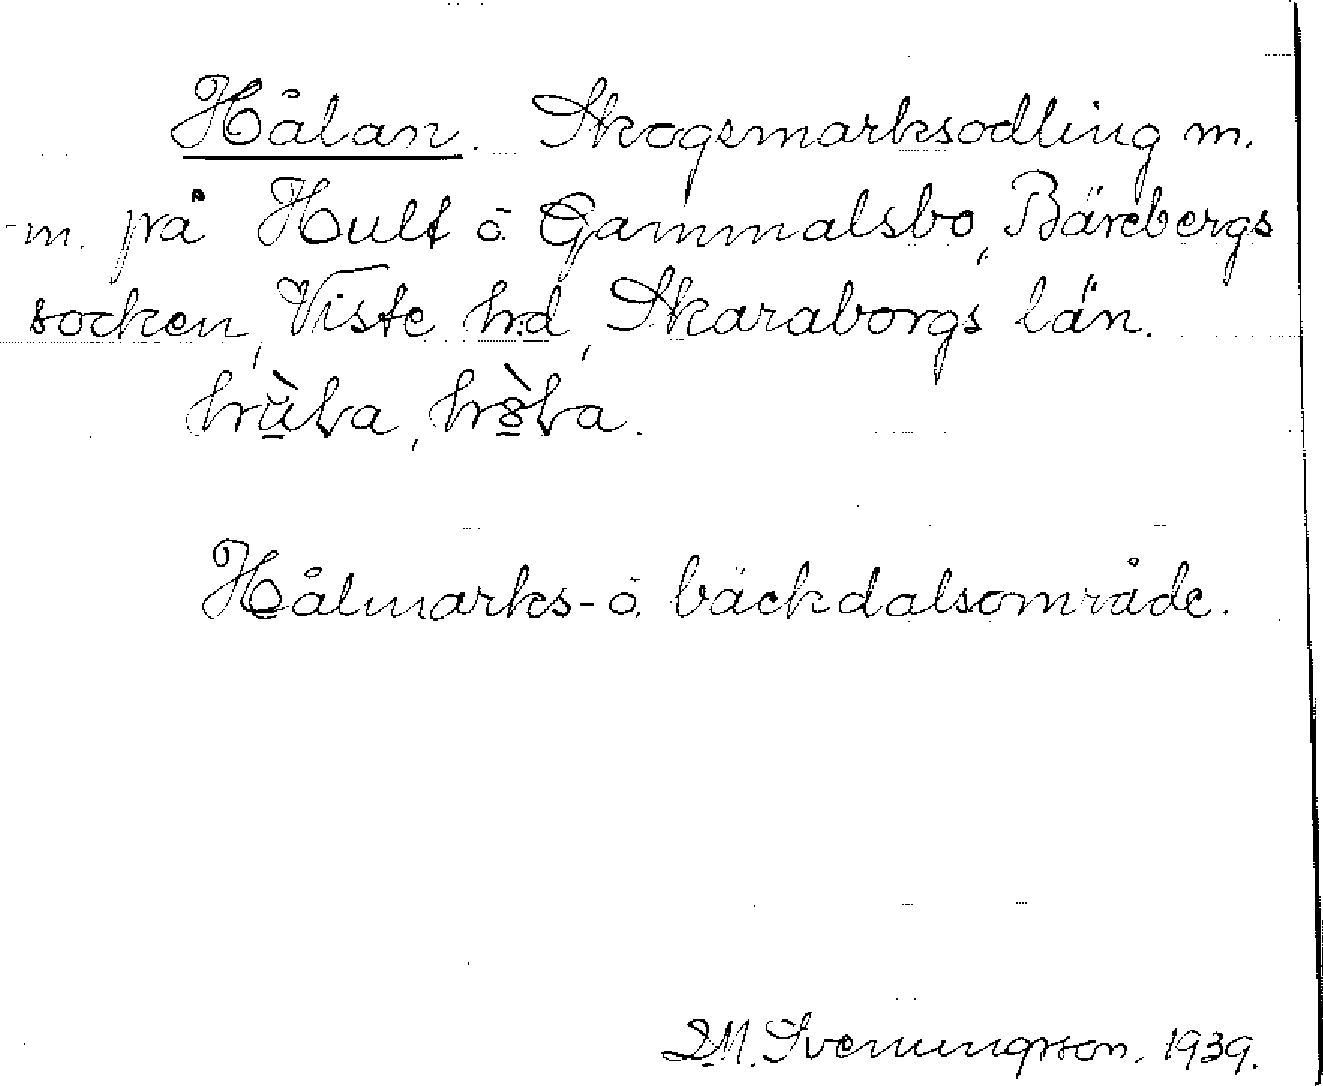 Hålan. Skogsmarksodling m.
m. på Hult ö. Gammalsbo, Bärebergs
socken, Viste hd, Skaraborgs län.
Hålmarks- ö. bäckdalsområde.
D.M. Svenungsson. 1939.